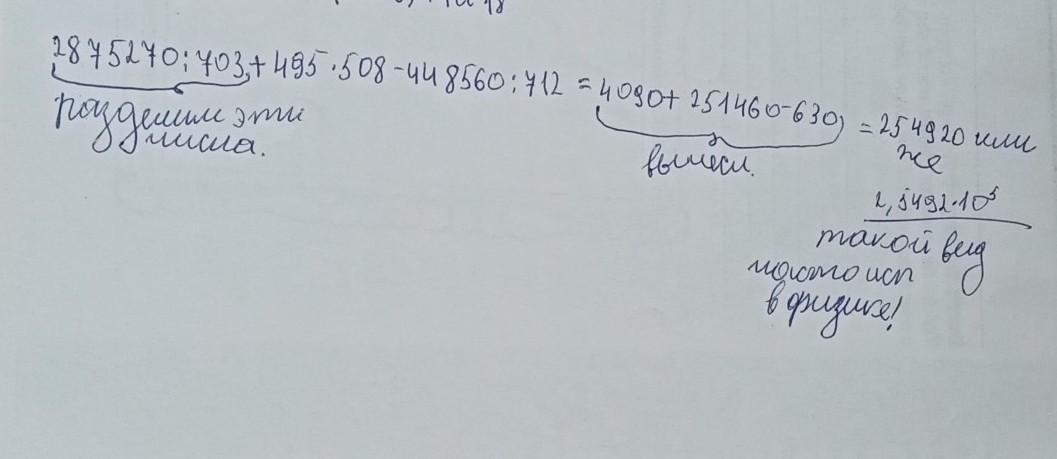 2875270:703+495·508-448560:712=4090+251460-630=254920 или
же
разделим эти
числа.
вычесл.
2,5492·10⁵
такой вид
часто исп
в физике!